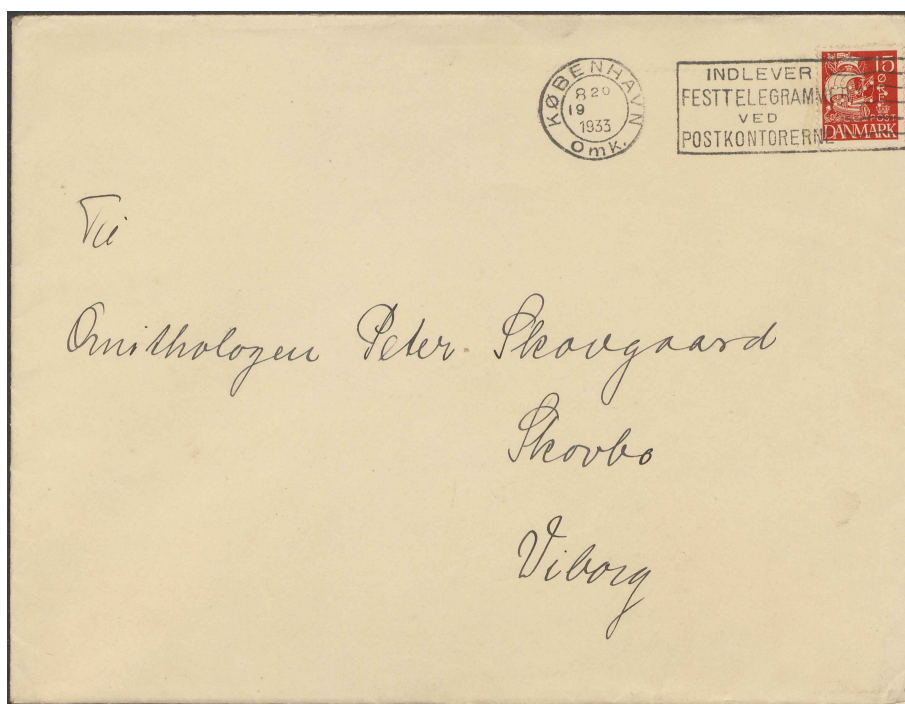 KØBENHAVN
8 20
19
1933
Omk.
INDLEVER
FESTTELEGRAMMER
VED
POSTKONTORERNE
15
ØRE
POST
DANMARK
Til
Ornithologen Peter Skovgaard
Skovbo
Viborg